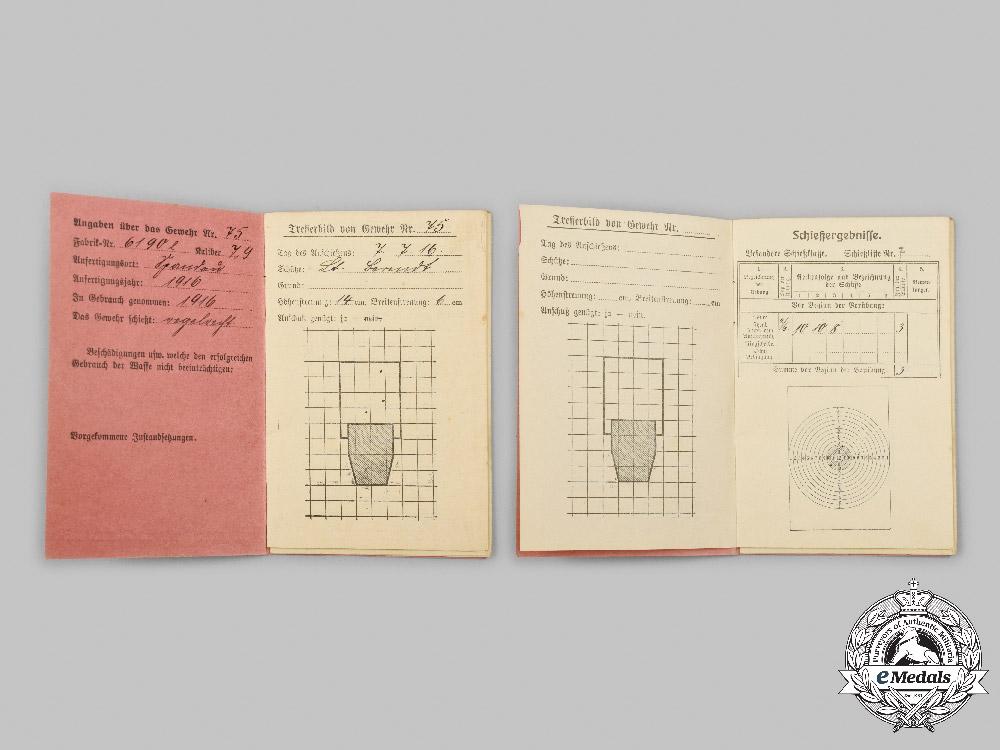 Angaben über das Gewehr Nr. 75
Fabrik-Nr. 6190 Kaliber 7,9
Anfertigungsort: Spandau
Anfertigungsjahr: 1916
In Gebrauch genommen: 1916
Das Gewehr schießt: regelrecht
Beschädigungen usw. welche den erfolgreichen
Gebrauch der Waffe nicht beeinträchtigen:
Vorgekommene Instandsetzungen.
Trefferbild von Gewehr Nr. 75
Tag des Anschießens: 7. 7. 16.
Schütze: Lt.
Grund:
Höhenstreuung: 14 cm, Breitenstreuung: 6 cm
Anschuß genügt: ja – nein.
Trefferbild von Gewehr Nr.
Tag des Anschießens:
Schütze:
Grund:
Höhenstreuung: cm, Breitenstreuung: cm
Anschuß genügt: ja – nein.
Schießergebnisse.
Besondere Schießklasse. Schießliste Nr. 7
1. 2. 3. 4. 5.
Bezeichnung der Übung
Reihenfolge und Bezeichnung der Schüsse
1 2 3 4 5 6 7
Vor Beginn der Vorübung:
10 10 8 3
Summe vor Beginn der Vorübung 3
Purveyors of Authentic Militaria
eMedals